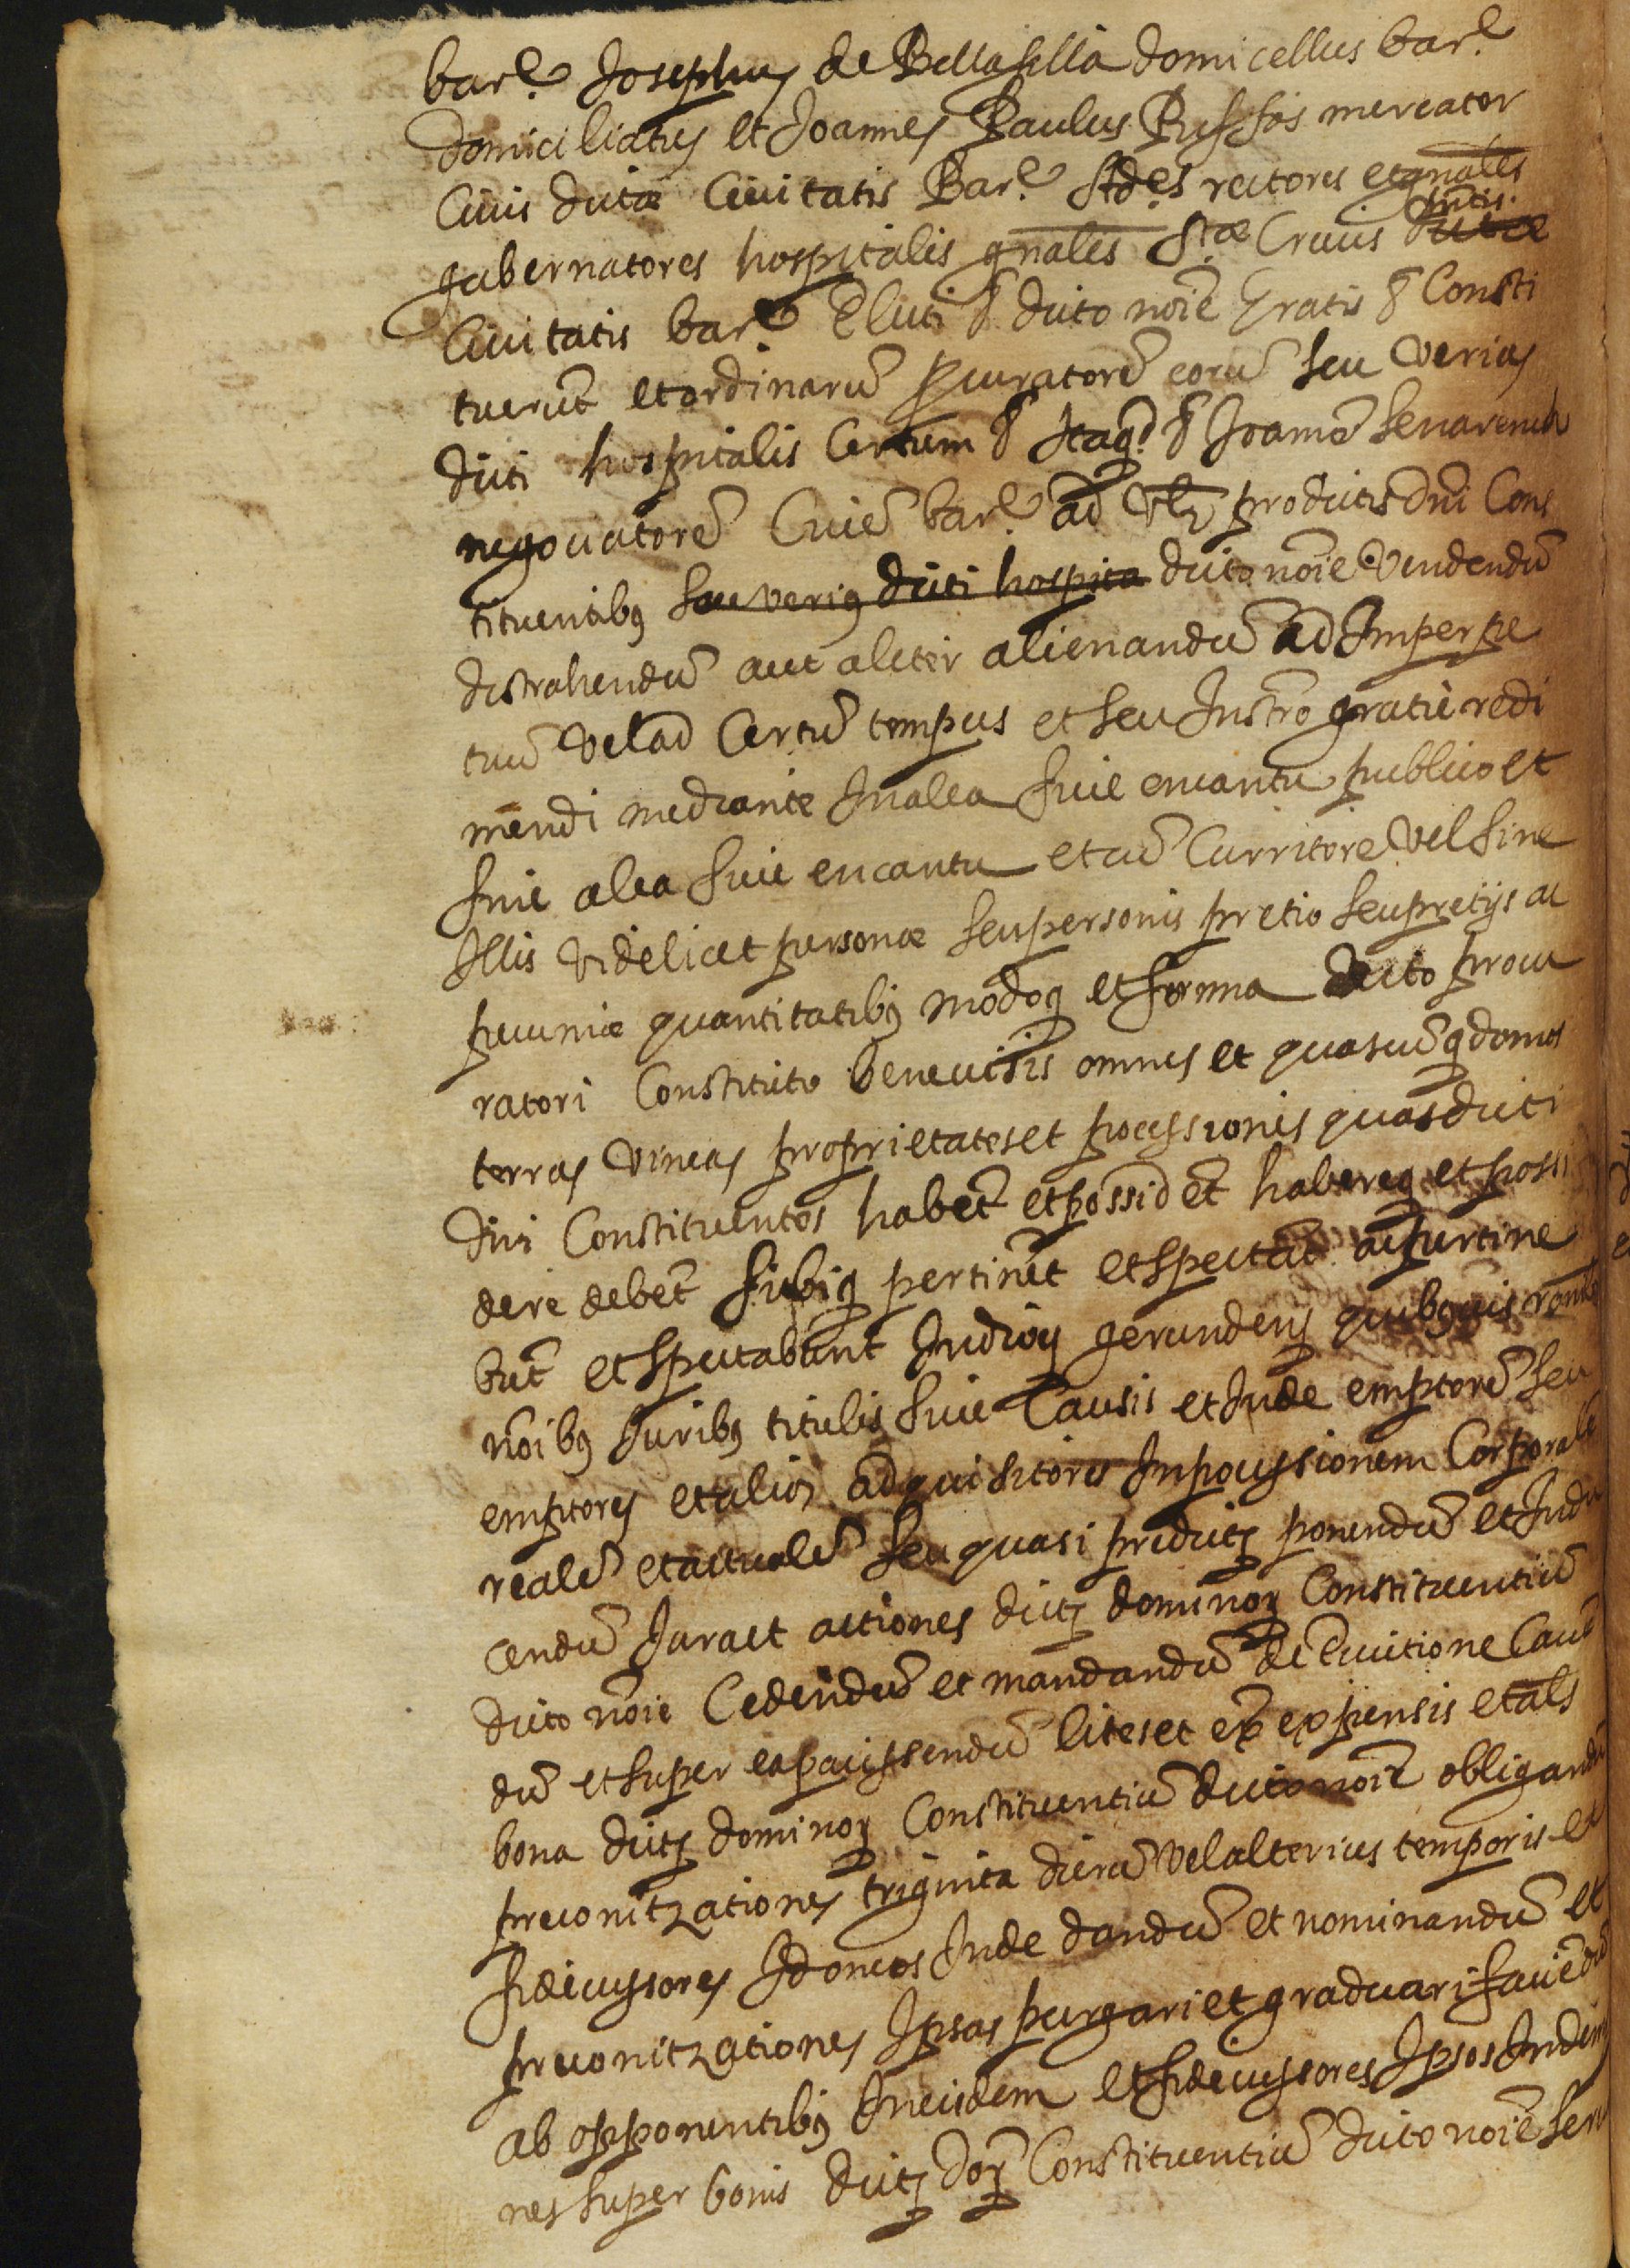 bar.e Josephus de Bellafilla domicellus bar.e
domiciliatus et Joannes Paulus Pussos mercator
Civis dictæ Civitatis Bar.e rectores et
gubernatores hospitalis gnalis S.tæ Crucis dictæ
Civitatis bar.e dicto noĩe Gratis & Consti
tuerũt et ordinarũ p̃curatorẽ eorũ seu verius
dicti hospitalis Certum & Itaq.d & Joannẽ
negociatorẽ Civẽ bar.e ad pro dictis dñi Cons
tituentibus seu verius dicti hospita dicto noĩe vendendũ
distrahendũ aut aliter alienandũ ad Imperpe
tuũ vel ad Certũ tempus et seu Instro gratie redi
mendi mediante In alea sive encantu publico et
sine alea sive encantu et cũ Curritore vel sine
Illis videlicet personæ seu personis pretio seu pretijs ac
pecuniæ quantitatibus modoq et forma dicto procu
ratori Constituto benevisis omnes et quascũq domos
terras vineas proprietates et pocessiones quas dicti
dñi Constituentes habẽt et possidẽt habereq et possi
dere debẽt sibiq pertinẽt et spectãt ac pertine
būt et spectabunt
noĩbus Juribus titulis sive Causis et Inde emptorẽ seu
emptores et alios adquisitores In pocessionem Corporalẽ
realẽ et actualẽ seu quasi predictꝝ ponendũ et Indu
cendũ Jura et actiones dictꝝ dominoꝝ Constituentiũ
dicto noĩe Cedendũ et mandandũ de Evictione Cavẽ
dũ et super ea paciscendũ lites et expensis et als
bona dictꝝ dominoꝝ Constituentiũ dicto noĩe obligandũ
preconitzationes triginta dierũ vel alterius temporis et
fideiussores Idoneos Inde dandũ et nominandũ et
preconitzationes Ipsas purgari et graduari faciẽdũ
ab opponentibus Ineisdem et fideiussores Ipsos Indem
nes super bonis dictꝝ doꝝ Constituentiũ dicto noĩe serv